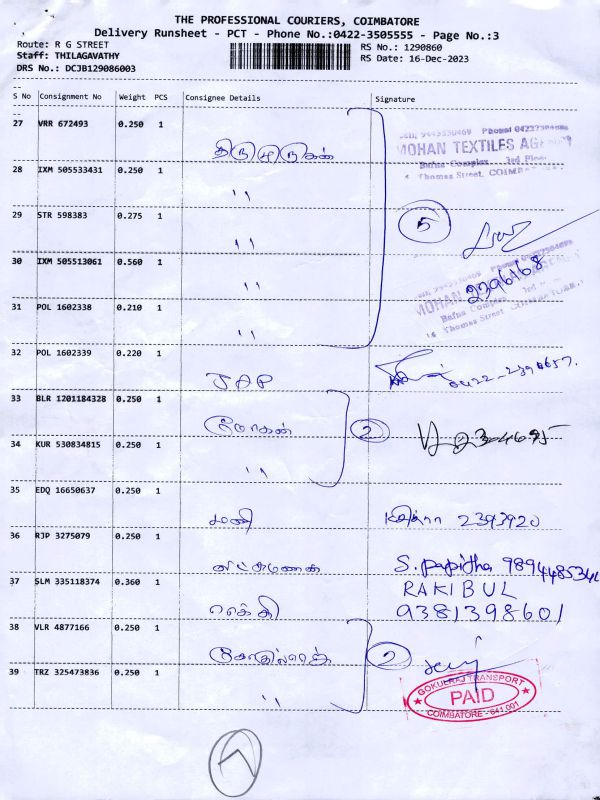 THE PROFESSIONAL COURIERS, COIMBATORE
Delivery Runsheet - PCT - Phone No.:0422-3505555 - Page No.:3
Route: R G STREET
RS No.: 1290860
Staff: THILAGAVATHY
RS Date: 16-Dec-2023
DRS No.: DCJB129086003
S No Consignment No Weight PCS Consignee Details Signature
27 VRR 672493 0.250 1
MOHAN TEXTILES AGENCY
Bafna Complex 3rd Floor
Thomas Street, COIMBATORE
28 IXM 505533431 0.250 1 ''
29 STR 598383 0.275 1 ''
5
30 IXM 505513061 0.560 1 ''
2396168
Bafna Complex 3rd
Thomas Street, COIMBATORE
31 POL 1602338 0.210 1 ''
32 POL 1602339 0.220 1 JAP
0422-2390657.
33 BLR 1201184328 0.250 1 மோகன்
2
34 KUR 530834815 0.250 1 ''
35 EDQ 16650637 0.250 1 மணி 2393920
36 RJP 3275079 0.250 1 S. Papitha
37 SLM 335118374 0.360 1 சக்தி RAKIBUL
9381398601
38 VLR 4877166 0.250 1
2
39 TRZ 325473836 0.250 1 ''
GOKULRAJ TRANSPORT
PAID
COIMBATORE - 641 001